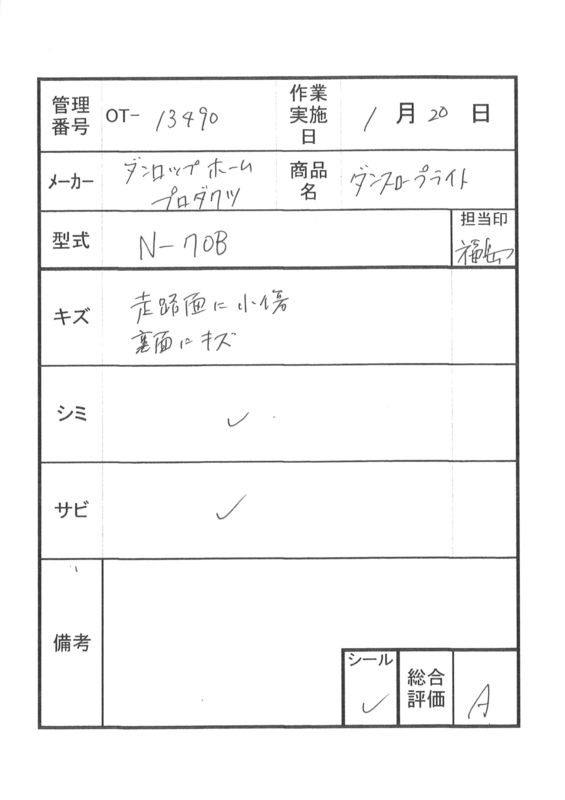 管理番号 OT- 13490 作業実施日 1月20日
メーカー ダンロップホームプロダクツ 商品名 ダンスロープライト
型式 N-70B 担当印 福島
キズ 走路面に小傷
裏面にキズ
シミ ✓
サビ ✓
備考
シール ✓ 総合評価 A